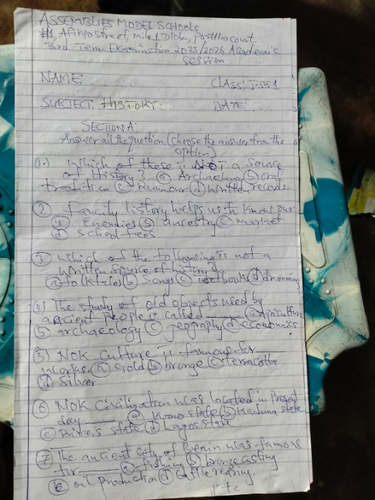 ASSEMBLIES MODEL SCHOOLS
#1 Afikpo Street, mile 1 Diobu, Portharcourt.
3rd Term Examination 2025/2026 Academic
session
NAME: CLASS: JSS1
SUBJECT: HISTORY DATE:
SECTION A:
Answer all the question (choose the answer from the
option)
(1) Which of these is NOT a source
of History? (a) Archaeology (b) oral
tradition (c) Rumour (d) Written records
2 Family history helps us to know our
(a) Enemies (b) ancestry (c) market
(d) school fees
3 Which of the following is not a
written source of history
(a) folktales (b) songs (c) textbook (d)
(4) The study of old objects used by
ancient people is called (a) agriculture
(b) archaeology (c) geography (d) economics
5) NOK Culture is famous for
works. (a) Gold (b) bronze (c) terracotta
(d) Silver
6 NOK Civilization was located in Present
day (a) Kano state (b) Kaduna state
(c) Rivers state (d) Lagos state
7 The ancient city of Benin was famous
for (a) fishing (b) bronze casting
(c) oil production (d)